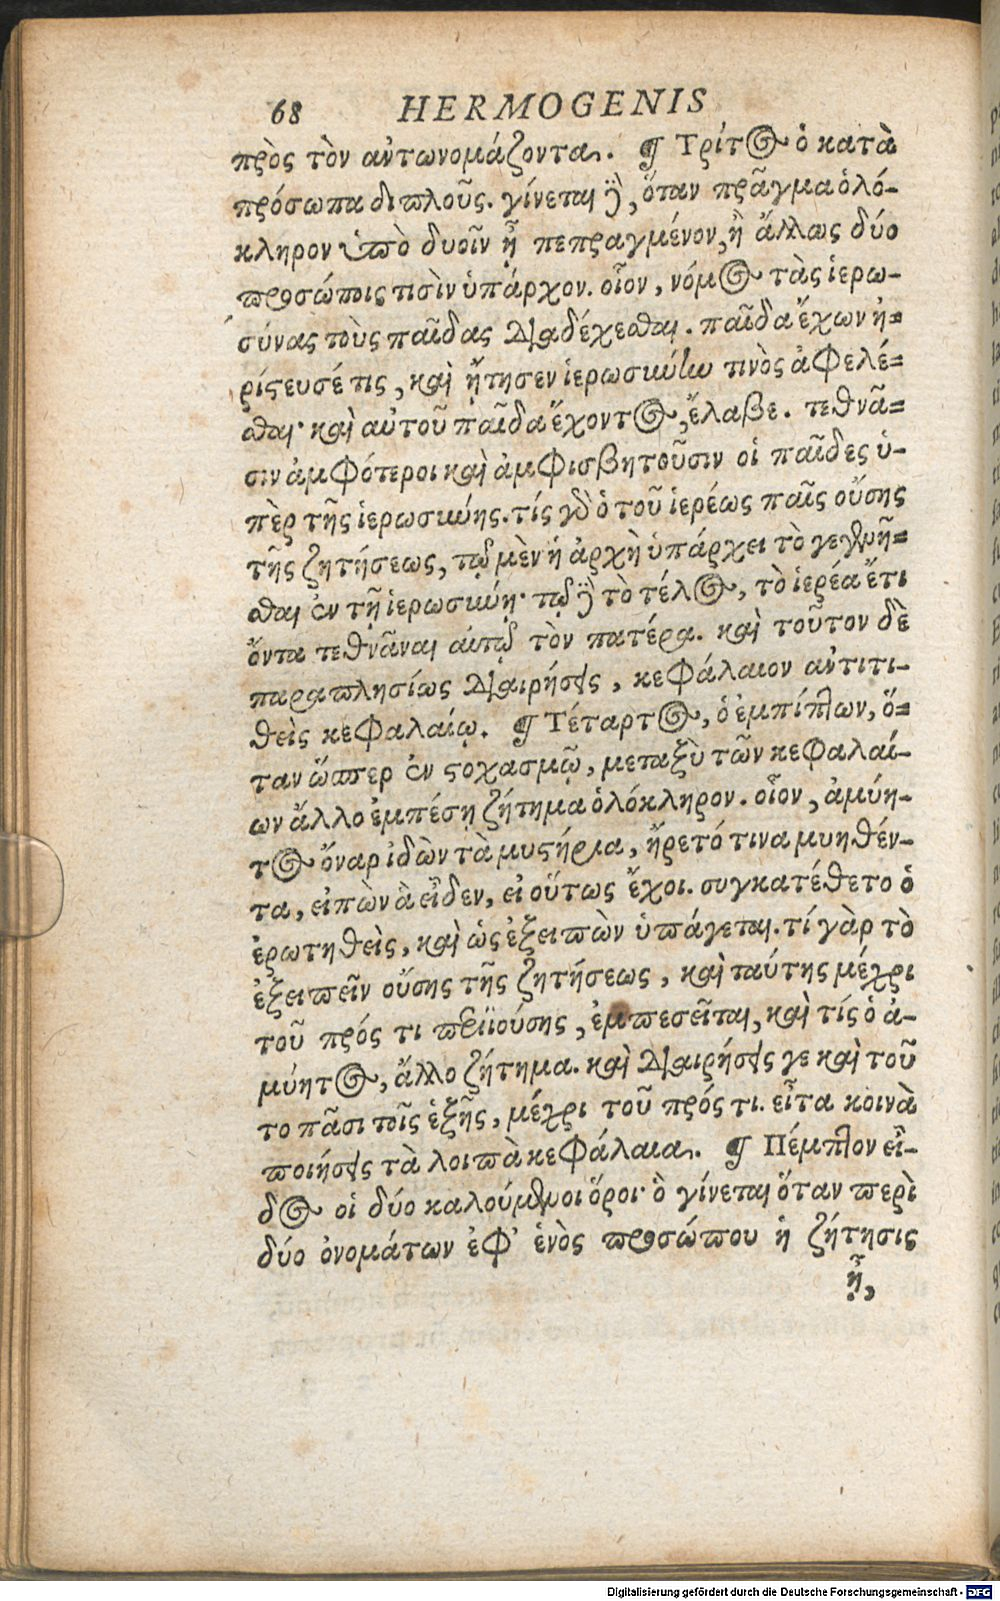 68 HERMOGENIS
πρὸς τὸν ἀντωνομάζοντα. ¶ Τρίτος ὁ κατὰ
πρόσωπα διπλοῦς. γίνεται δὲ, ὅταν πρᾶγμα ὁλό-
κληρον ὑπὸ δυοῖν ᾖ πεπραγμένον, ἢ ἄλλως δύο
προσώποις τισὶν ὑπάρχον. οἷον, νόμος τὰς ἱερω-
σύνας τοὺς παῖδας διαδέχεσθαι. παῖδα ἔχων ἠ-
ρίστευσέ τις, καὶ ᾔτησεν ἱερωσύνην τινὸς ἀφελέ-
σθαι· καὶ αὐτοῦ παῖδα ἔχοντος, ἔλαβε. τεθνᾶ-
σιν ἀμφότεροι καὶ ἀμφισβητοῦσιν οἱ παῖδες ὑ-
πὲρ τῆς ἱερωσύνης. τίς γὰρ ὁ τοῦ ἱερέως παῖς οὔσης
τῆς ζητήσεως, τῷ μὲν ἡ ἀρχὴ ὑπάρχει τὸ γεγενῆ-
σθαι ἐν τῇ ἱερωσύνῃ· τῷ δὲ τὸ τέλος, τὸ ἱερέα ἔτι
ὄντα τεθνᾶναι αὐτῷ τὸν πατέρα. καὶ τοῦτον δὲ
παραπλησίως διαιρήσεις, κεφάλαιον ἀντιτι-
θεὶς κεφαλαίῳ. ¶ Τέταρτος, ὁ ἐμπίπτων, ὅ-
ταν ὥσπερ ἐν στοχασμῷ, μεταξὺ τῶν κεφαλαί-
ων ἄλλο ἐμπέσῃ ζήτημα ὁλόκληρον. οἷον, ἀμύη-
τος ὄναρ ἰδὼν τὰ μυστήρια, ἤρετό τινα μυηθέν-
τα, εἰπὼν ἃ εἶδεν, εἰ οὕτως ἔχοι. συγκατέθετο ὁ
ἐρωτηθεὶς, καὶ ὡς ἐξειπὼν ὑπάγεται. τί γὰρ τὸ
ἐξειπεῖν οὔσης τῆς ζητήσεως, καὶ ταύτης μέχρι
τοῦ πρός τι προϊούσης, ἐμπεσεῖται, καὶ τίς ὁ ἀ-
μύητος, ἄλλο ζήτημα. καὶ διαιρήσεις γε καὶ τοῦ
το πᾶσι τοῖς ἑξῆς, μέχρι τοῦ πρός τι. εἶτα κοινὰ
ποιήσεις τὰ λοιπὰ κεφάλαια. ¶ Πέμπτον εἶ-
δος οἱ δύο καλούμενοι ὅροι· ὃ γίνεται ὅταν περὶ
δύο ὀνομάτων ἐφ' ἑνὸς προσώπου ἡ ζήτησις
ᾖ,
Digitalisierung gefördert durch die Deutsche Forschungsgemeinschaft - DFG